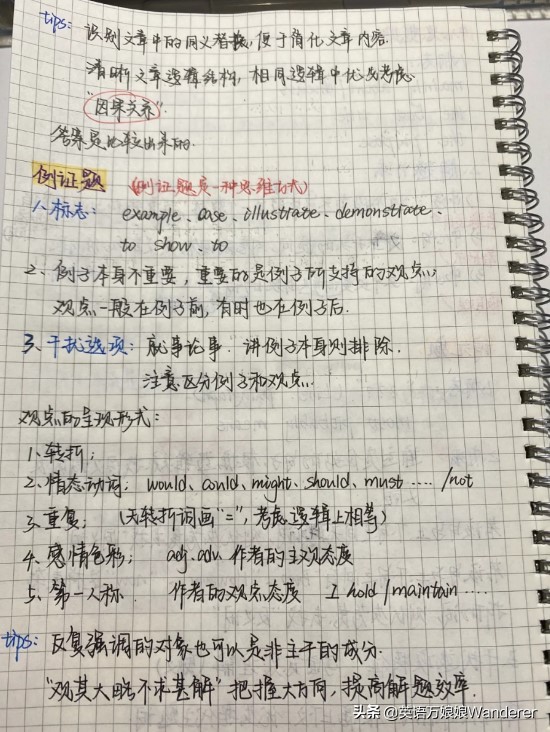 tips: 识别文章中的同义替换,便于简化文章内容.
清晰文章逻辑结构,相同逻辑中优先考虑
"因果关系"
答案是比较出来的.
例证题 (例证题是一种思维方式)
1、标志: example、case、illustrate、demonstrate、
to show、to
2、例子本身不重要,重要的是例子所支持的观点;
观点一般在例子前,有时也在例子后.
3、干扰选项: 就事论事. 讲例子本身则排除.
注意区分例子和观点.
观点的呈现形式:
1、转折;
2、情态动词; would、could、might、should、must .... /not
3、重复; (无转折词画"=",考虑逻辑上相等)
4、感情色彩; adj.adv. 作者的主观态度
5、第一人称. 作者的观点态度 I hold/maintain ....
tips: 反复强调的对象也可以是非主干的成分.
"观其大略不求甚解" 把握大方向,提高解题效率.
头条 @英语万娘娘Wanderer